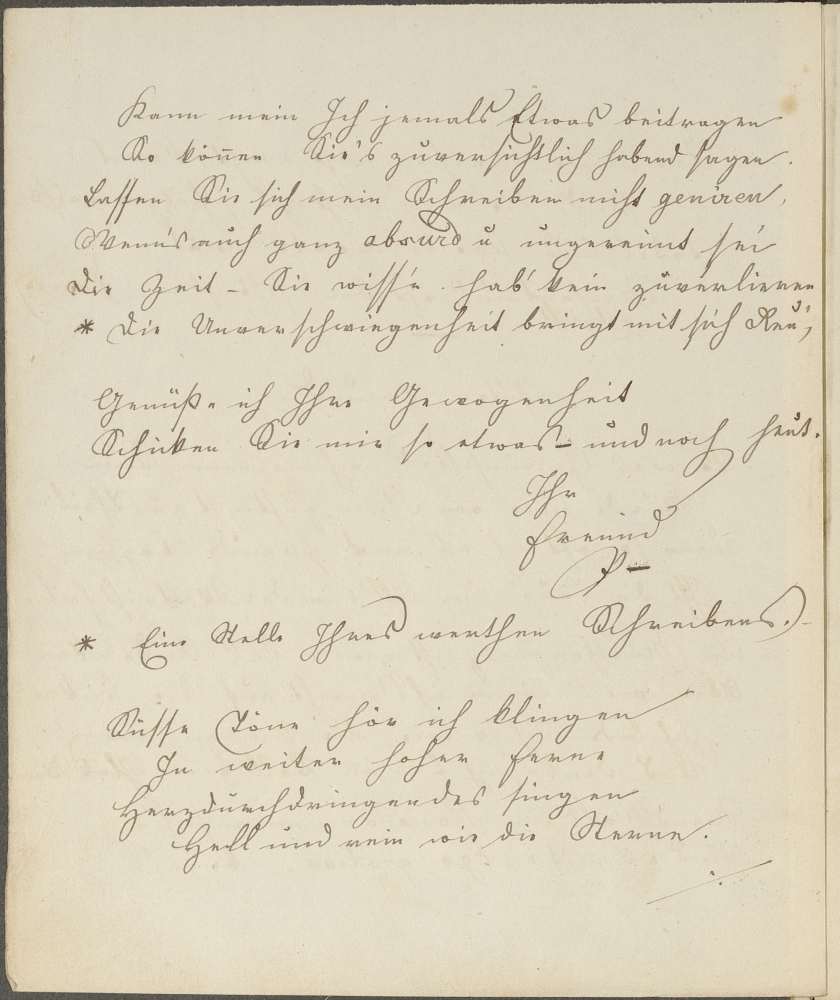 Kann mein Ich jemals Etwas beitragen
So können Sie's zuversichtlich habend sagen.
Lassen Sie sich mein Schreiben nicht geniren,
Wenn's auch ganz absurd u ungereimt sei
Die Zeit – Sie wiss'n hab' kein zuverlieren
* Die Unverschwiegenheit bringt mit sich Reu',
Genüß- ich Ihre Gewogenheit
Schicken Sie mir so etwas – und noch heut.
Ihr
Freund
P–
* Eine Stelle Ihres werthen Schreibens.)
Süsse Töne hör ich klingen
In weiter hoher Ferne
Herzdurchdringendes singen
Hell und rein wie die Sterne.